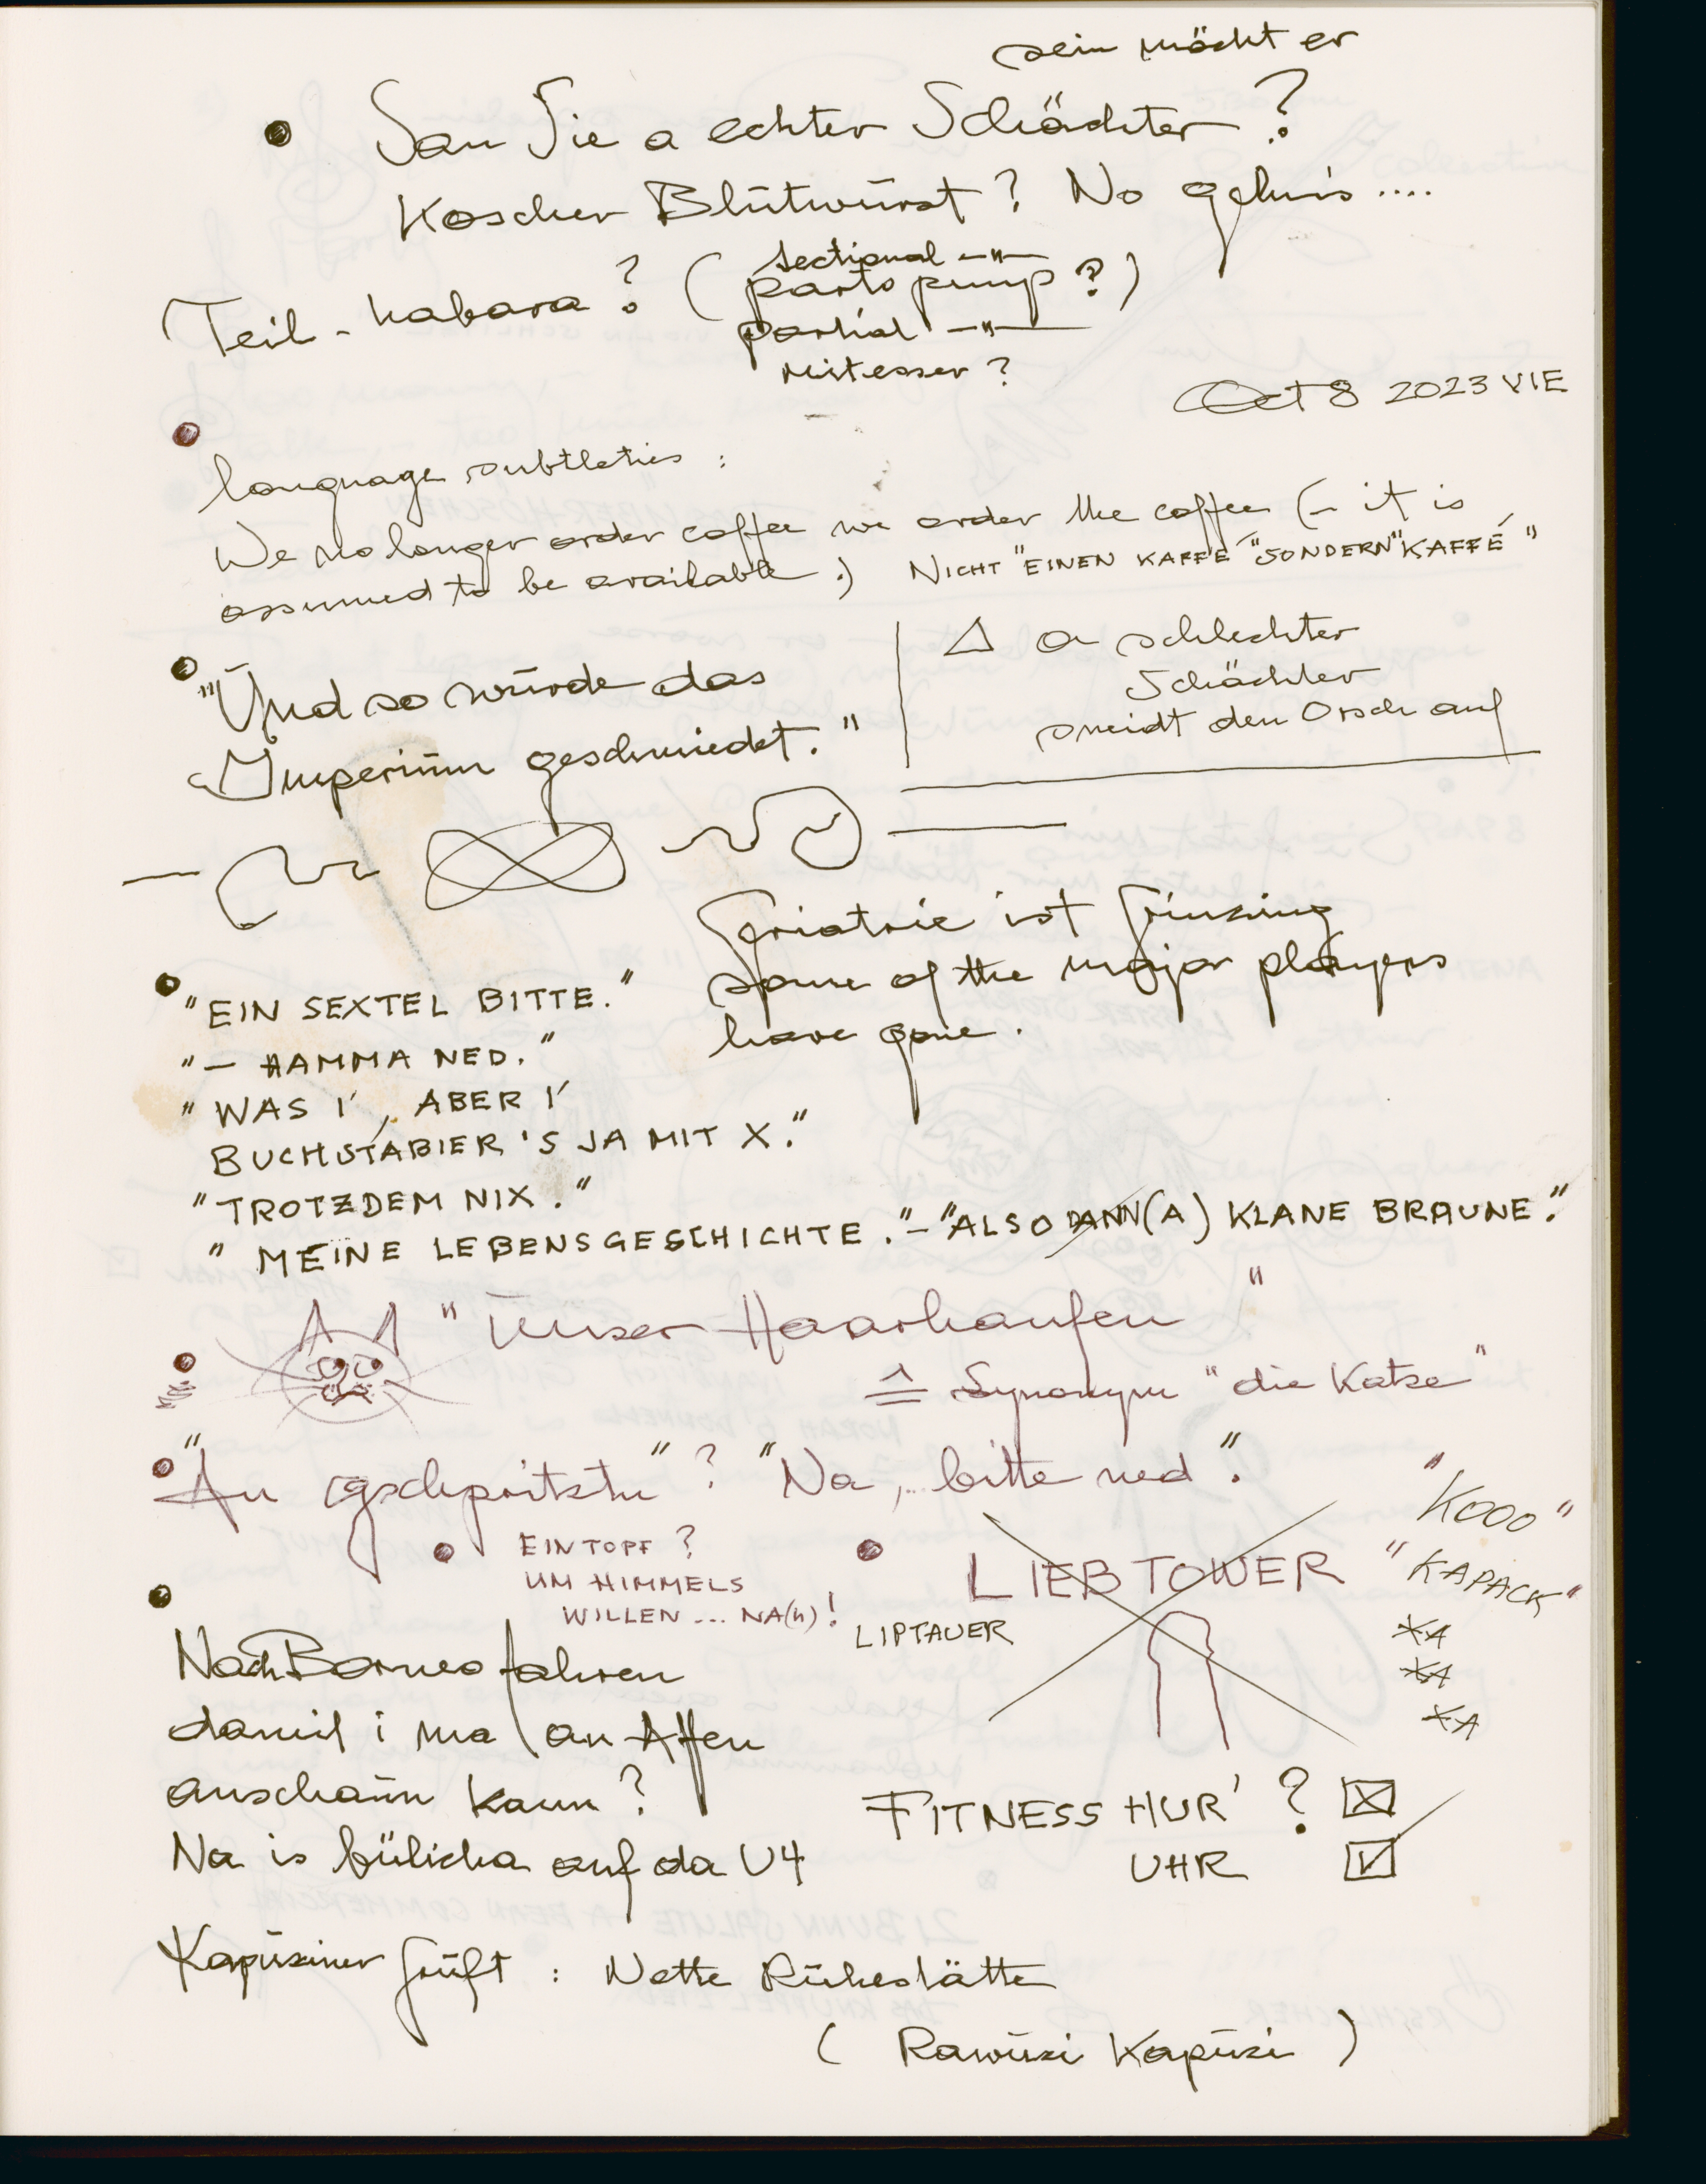 sein möcht er
• San Sie a echter Schächter ?
Koscher Blutwurst ? No gehns ....
Teil - habara ? ( parts pump ? )
sectional -"-
partial -"-
mitesser ?
Oct 8 2023 VIE
• language subtleties :
We no longer order coffee we order the coffee (- it is
assumed to be available .) NICHT "EINEN KAFFÉ" SONDERN "KAFFÉ"
• "Und so wurde das
Imperium geschmiedet."
△ a schlechter
Schächter
sneidt den Orsch auf
Geriatrie ist Grinzing
some of the major players
have gone .
• "EIN SEXTEL BITTE."
"— HAMMA NED."
"WAS I', ABER I'
BUCHSTABIER'S JA MIT X."
"TROTZDEM NIX."
"MEINE LEBENSGESCHICHTE." – "ALSO DANN (A) KLANE BRAUNE."
• "Unser Haarhaufen"
≙ Synonym "die Katze"
• "An gschpritztn" ? "Na, bitte ned".
• EINTOPF ?
UM HIMMELS
WILLEN ... NA(h) !
• LIEBTOWER
LIPTAUER
"KOOO"
"KAPACK"
• Nach Borneo fahren
damit i ma an Affen
anschaun kann ?
Na is bülicha auf da U4
FITNESS HUR' ? ☒
UHR ☑
Kapuziner Gruft : Nette Ruhestätte
( Rawuzi Kapuzi )